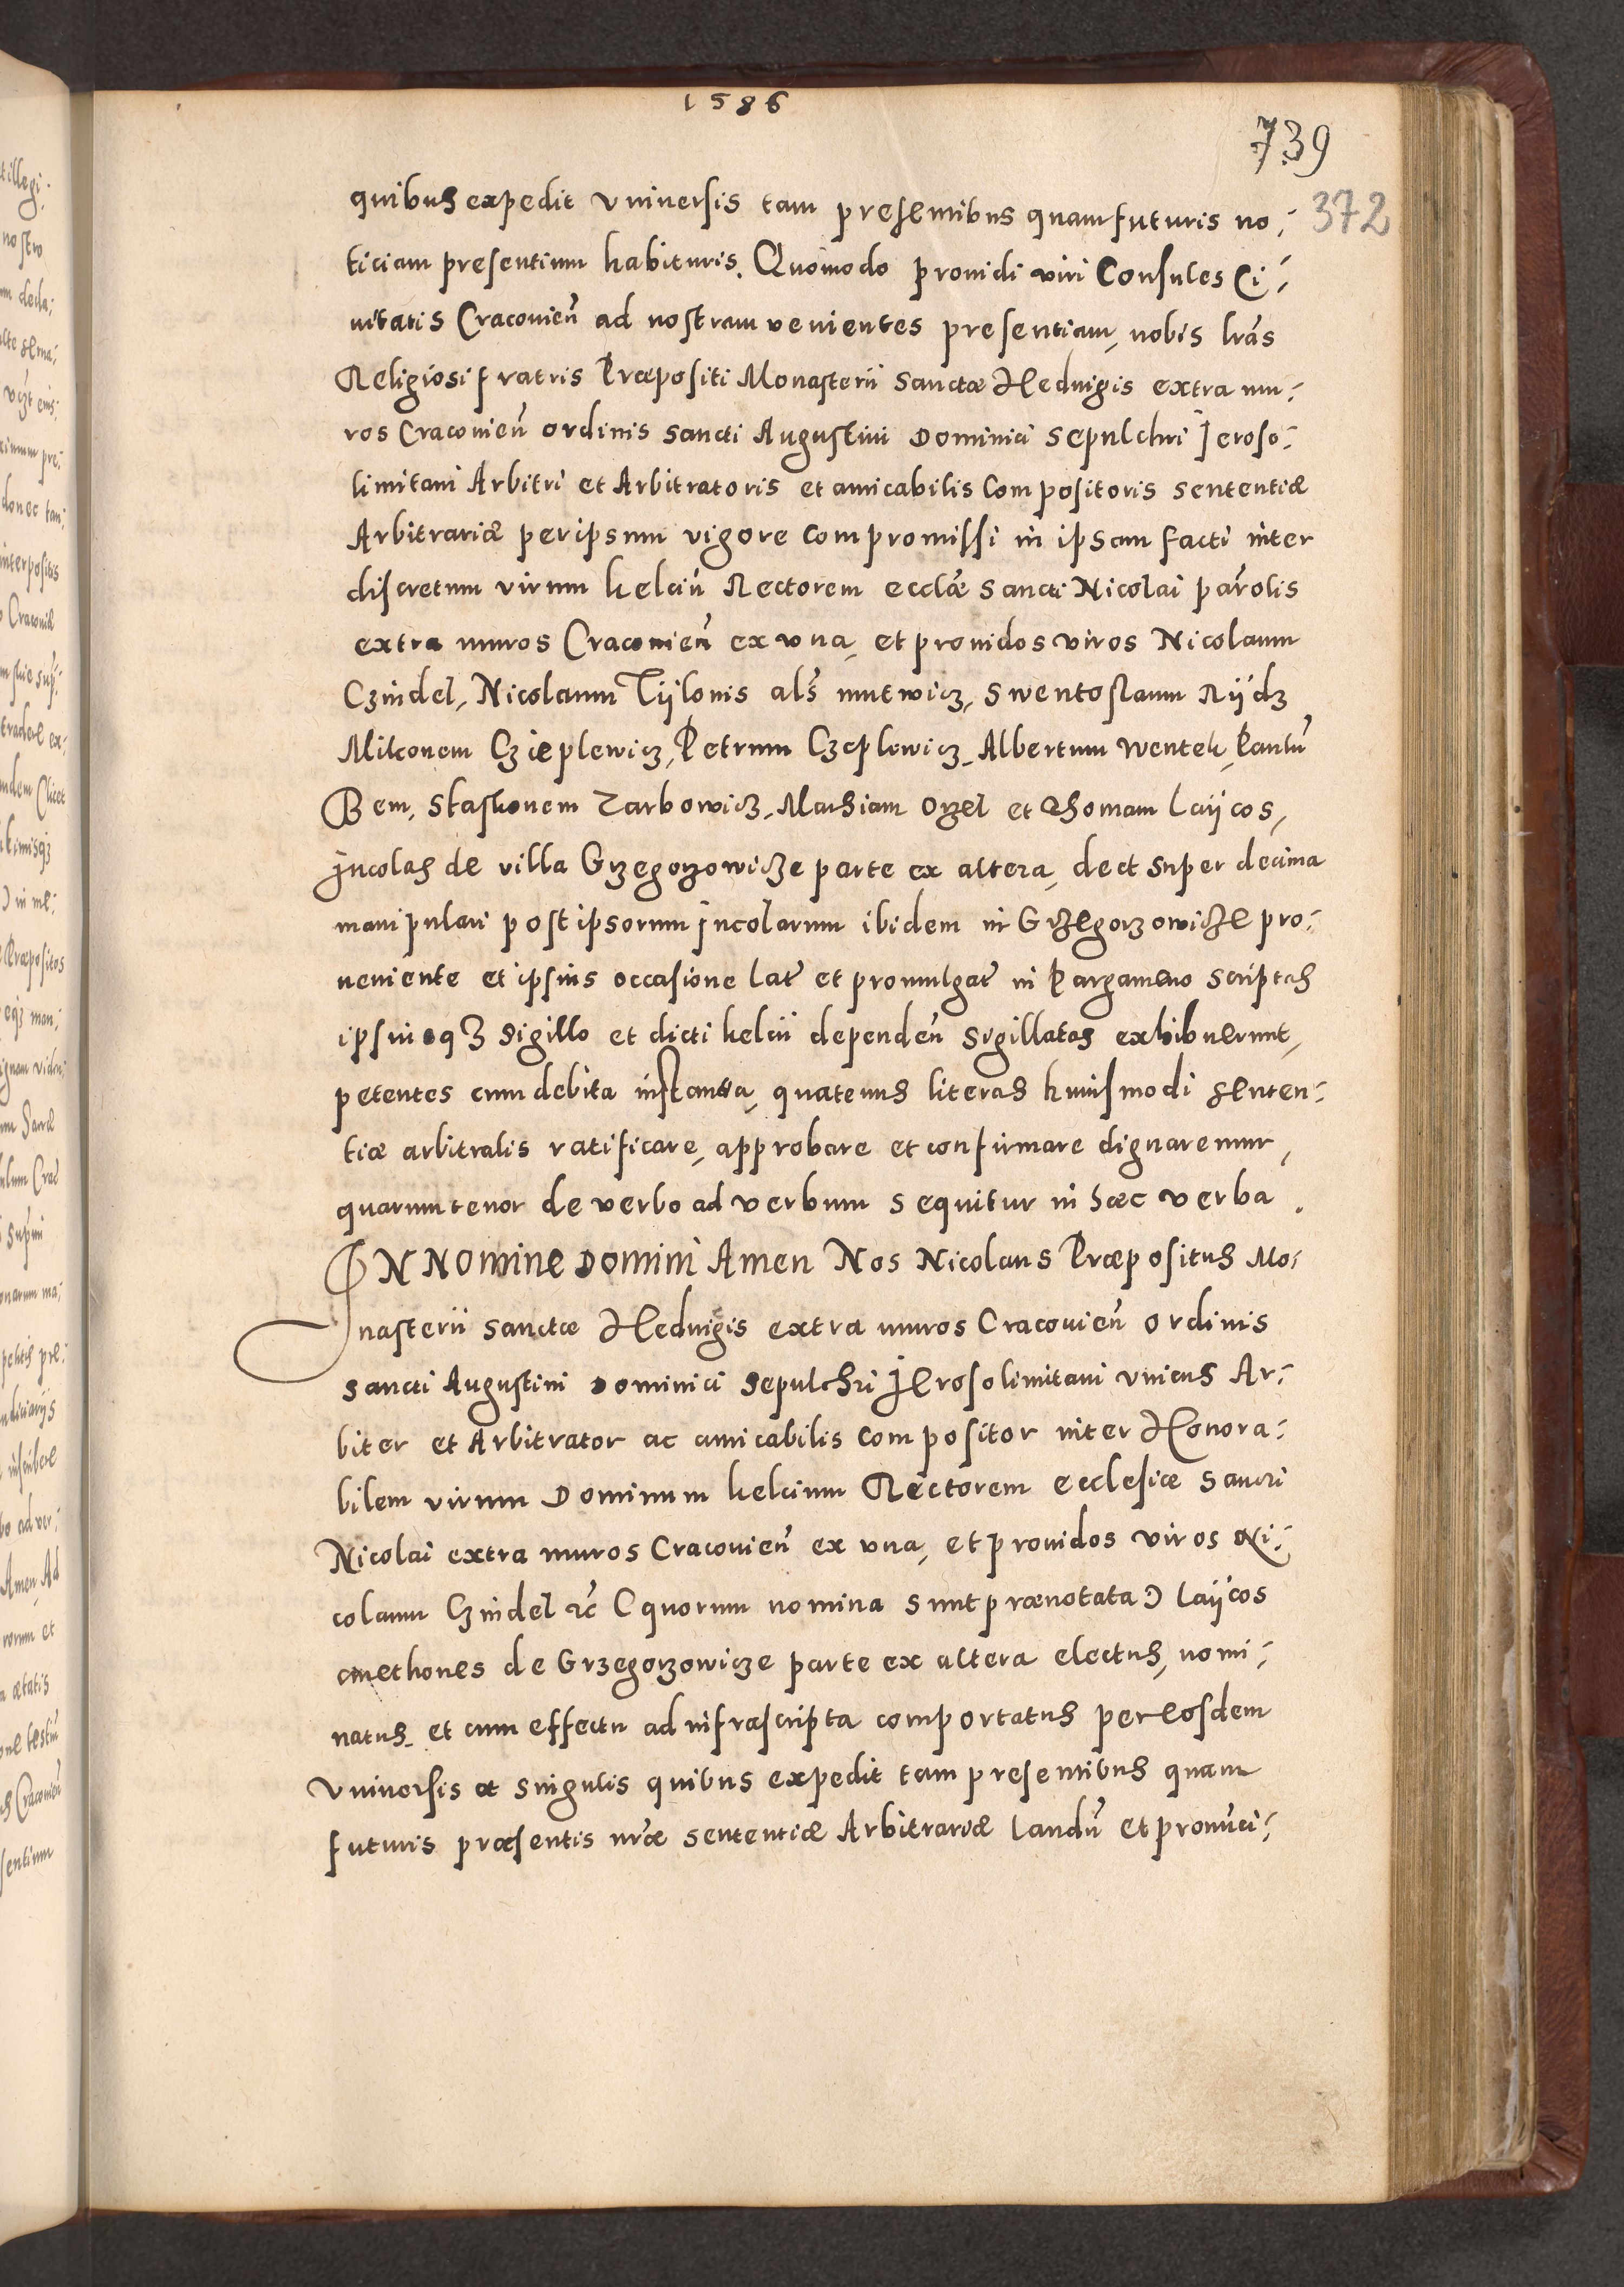 1586
739
372
quibus expedit vniuersis tam presentibus quam futuris no-
ticiam presentium habituris. Quomodo prouidi viri Consules Ci-
uitatis Cracouień ad nostram venientes presentiam, nobis lrãs
Religiosi fratris Præpositi Monasterii Sanctæ Heduigis extra mu-
ros Cracouień ordinis sancti Augustini Dominici Sepulchri Jeroso-
limitani Arbitri et Arbitratoris et amicabilis Compositoris sententiæ
Arbitrariæ per ipsum vigore compromissi in ipsam facti inter
discretum virum kelciũ Rectorem ecclãe Sancti Nicolai parõlis
extra muros Cracouień ex vna, et prouidos viros Nicolaum
Czindel, Nicolaum Tÿlonis als̃ mutwicz, Swentoslaum Rÿdz
Milconem Czieplewicz, Petrum Czeplewicz, Albertum Wentek, Paulũ
Bem, Staskonem Tarbowicz, Mathiam Orzel et Thomam laÿcos,
Jncolas de villa Grzegorzowicze parte ex altera, de et super decima
manipulari post ipsorum Jncolarum ibidem in Grzegorzowicze pro-
ueniente et ipsius occasione lat̃ et promulgat̃ in Pargameno scriptas
ipsiusqz sigillo et dicti kelcii dependeñ sigillatas exhibuerunt,
petentes cum debita instantia, quatenus literas huiusmodi senten-
tiæ arbitralis ratificare, approbare et confirmare dignaremur,
quarum tenor de verbo ad verbum sequitur in hæc verba.
IN Nomine Domini Amen Nos Nicolaus Præpositus Mo-
nasterii sanctæ Heduigis extra muros Cracouień ordinis
sancti Augustini Dominici Sepulchri Jerosolimitani vnicus Ar-
biter et Arbitrator ac amicabilis compositor inter Honora-
bilem virum Dominum kelcium Rectorem ecclesiæ Sancti
Nicolai extra muros Cracouień ex vna, et prouidos viros Ni-
colaum Czindel &c̃ (quorum nomina sunt prænotata) laÿcos
cmethones de Grzegorzowicze parte ex altera electus, nomi-
natus, et cum effectu ad infrascripta comportatus per eosdem
Vniuersis et singulis quibus expedit tam presentibus quam
futuris præsentis nrãe sententiæ Arbitrariæ laudũ et pronũci-